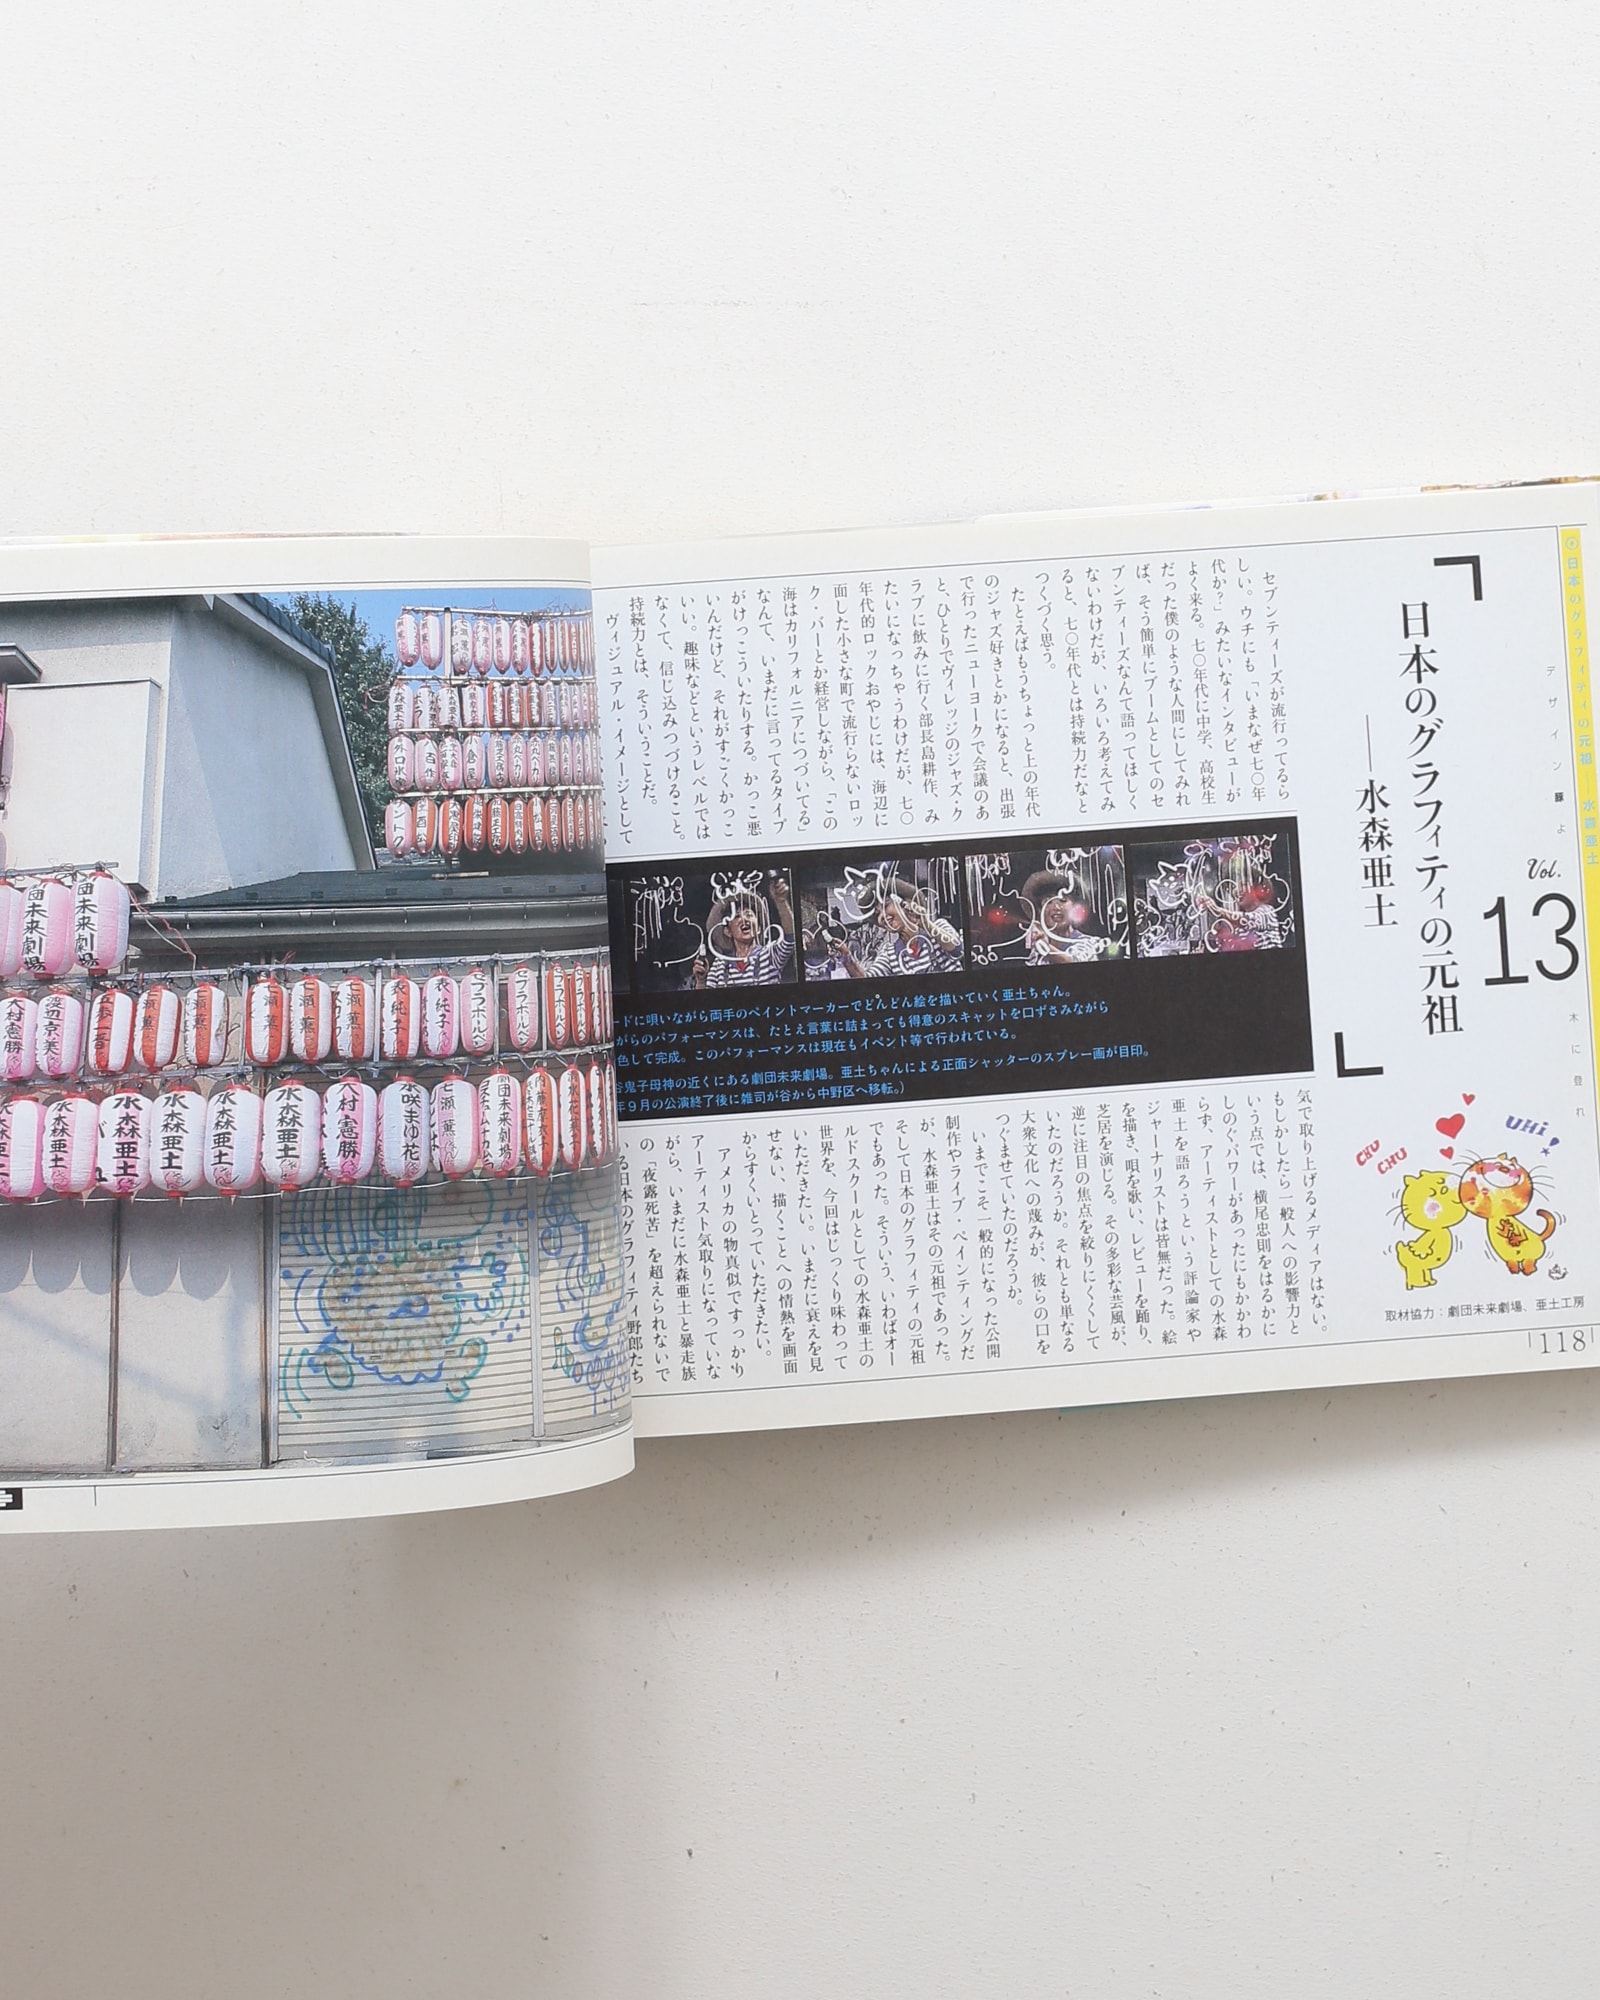 ◎日本のグラフィティの元祖──水森亜土
デザイン豚よ木に登れ
Vol.
13
「日本のグラフィティの元祖
──水森亜土」
CHU
CHU
UHi!
取材協力：劇団未来劇場、亜土工房
118
セブンティーズが流行ってるら
しい。ウチにも「いまなぜ七〇年
代か？」みたいなインタビューが
よく来る。七〇年代に中学、高校生
だった僕のような人間にしてみれ
ば、そう簡単にブームとしてのセ
ブンティーズなんて語ってほしく
ないわけだが、いろいろ考えてみ
ると、七〇年代とは持続力だなと
つくづく思う。
たとえばもうちょっと上の年代
のジャズ好きとかになると、出張
で行ったニューヨークで会議のあ
と、ひとりでヴィレッジのジャズ・ク
ラブに飲みに行く部長島耕作、み
たいになっちゃうわけだが、七〇
年代的ロックおやじには、海辺に
面した小さな町で流行らないロッ
ク・バーとか経営しながら、「この
海はカリフォルニアにつづいてる」
なんて、いまだに言ってるタイプ
がけっこういたりする。かっこ悪
いんだけど、それがすごくかっこ
いい。趣味などというレベルでは
なくて、信じ込みつづけること。
持続力とは、そういうことだ。
ヴィジュアル・イメージとして
ードに唄いながら両手のペイントマーカーでどんどん絵を描いていく亜土ちゃん。
がらのパフォーマンスは、たとえ言葉に詰まっても得意のスキャットを口ずさみながら
色して完成。このパフォーマンスは現在もイベント等で行われている。
谷鬼子母神の近くにある劇団未来劇場。亜土ちゃんによる正面シャッターのスプレー画が目印。
年９月の公演終了後に雑司が谷から中野区へ移転。）
気で取り上げるメディアはない。
もしかしたら一般人への影響力と
いう点では、横尾忠則をはるかに
しのぐパワーがあったにもかかわ
らず、アーティストとしての水森
亜土を語ろうという評論家や
ジャーナリストは皆無だった。絵
を描き、唄を歌い、レビューを踊り、
芝居を演じる。その多彩な芸風が、
逆に注目の焦点を絞りにくくして
いたのだろうか。それとも単なる
大衆文化への蔑みが、彼らの口を
つぐませていたのだろうか。
いまでこそ一般的になった公開
制作やライブ・ペインティングだ
が、水森亜土はその元祖であった。
そして日本のグラフィティの元祖
でもあった。そういう、いわばオー
ルドスクールとしての水森亜土の
世界を、今回はじっくり味わって
いただきたい。いまだに衰えを見
せない、描くことへの情熱を画面
からすくいとっていただきたい。
アメリカの物真似ですっかり
アーティスト気取りになっていな
がら、いまだに水森亜土と暴走族
の「夜露死苦」を超えられないで
いる日本のグラフィティ野郎たち
団未来劇場
団未来劇場
大村憲勝
渡辺京美
七瀬薫
七瀬薫
七瀬薫
衣純子
衣純子
ゼブラボールペン
ゼブラボールペン
水森亜土
水森亜土
水森亜土
水森亜土
水森亜土
水森亜土
大村憲勝
水咲まゆ花
七瀬薫
劇団未来劇場